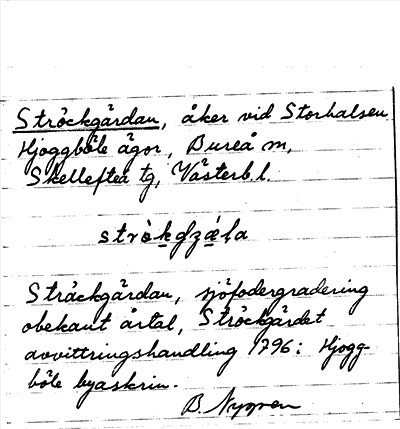 Ströckgärdan, åker vid Storhalsen
Hjoggböle ägor, Bureå sn,
Skellefteå tg, Västerb l.
Sträckgärdan, sjöfodergradering
obekant årtal, Ströckgärdet
avvittringshandling 1796: Hjogg-
böle byaskrin.
B. Nygren